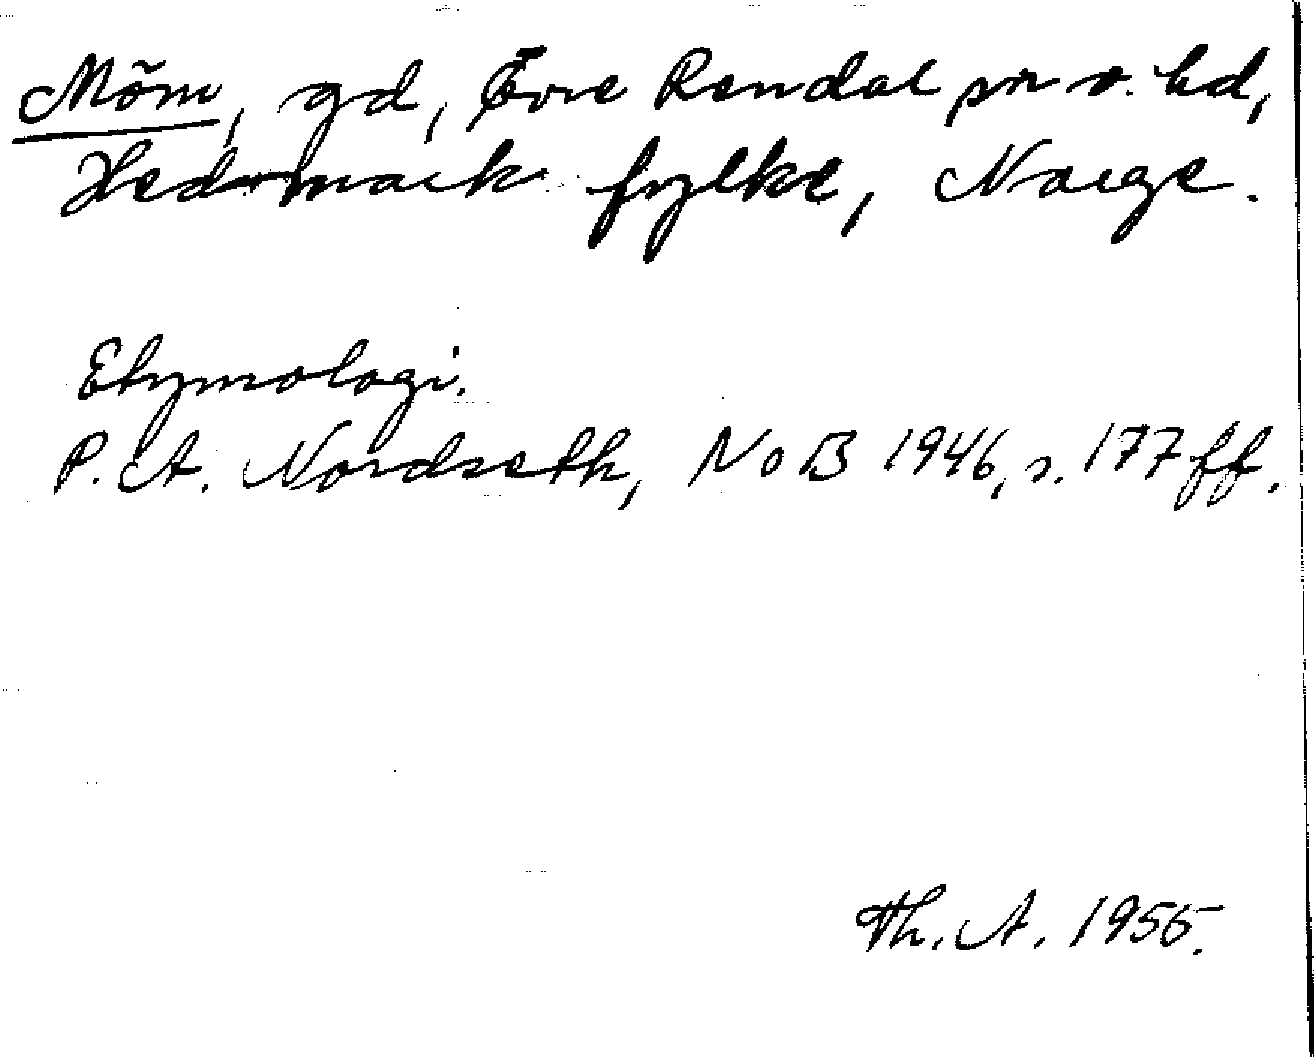 Mõm, gd, Øvre Rendal sn o. hd,
Hedmark fylke, Norge.
Etymologi.
P. A. Nordseth, NoB 1946, s. 177 ff.
Th. A. 1955.